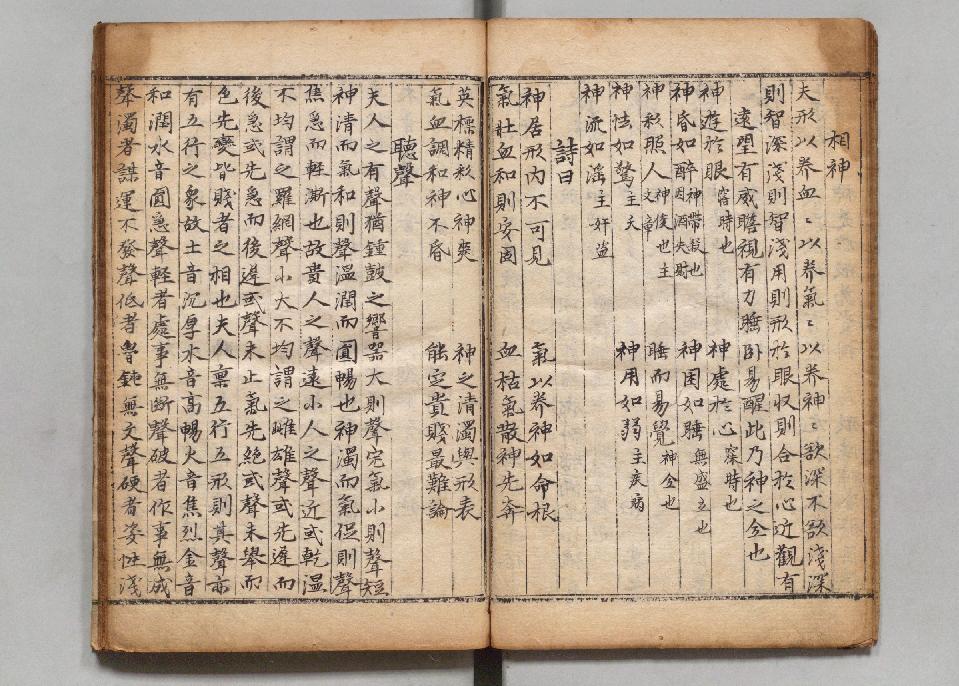 相神
夫形以养血〻以养氣〻以养神〻欲深不欲淺深
則智深淺則智淺用則形於眼收則合於心近觀有
遠望有威瞻視有力睡卧易醒此乃神之全也
神遊於眼 寤時也 神處於心 寐時也
神昏如醉 神帶殺也因酒失財 神困如睡 無盛立也
神彩照人 神俊也主文章 睡而易覺 神全也
神怯如驚 主夭 神用如弱 主疾病
神流如滛 主奸盜
詩曰
神居形內不可見 氣以养神如命根
氣壯血和則安固 血枯氣散神先奔
英標精彩心神爽 神之清濁與形表
氣血調和神不昏 能定貴賤最難論
聽聲
夫人之有聲猶鍾鼓之響器大則聲宏氣小則聲短
神清而氣和則聲温潤而圓暢也神濁而氣促則聲
焦急而輕澌也故貴人之聲遠小人之聲近或乾温
不均謂之羅網聲小大不均謂之雌雄聲或先遲而
後急或先急而後遲或聲未止氣先絕或聲未舉而
色先變皆賤者之相也夫人禀五行五形則其聲亦
有五行之象故土音沉厚木音高暢火音焦烈金音
和潤水音圓急聲輕者處事無断聲破者作事無成
聲濁者謀運不發聲低者魯鈍無文聲硬者姿性淺